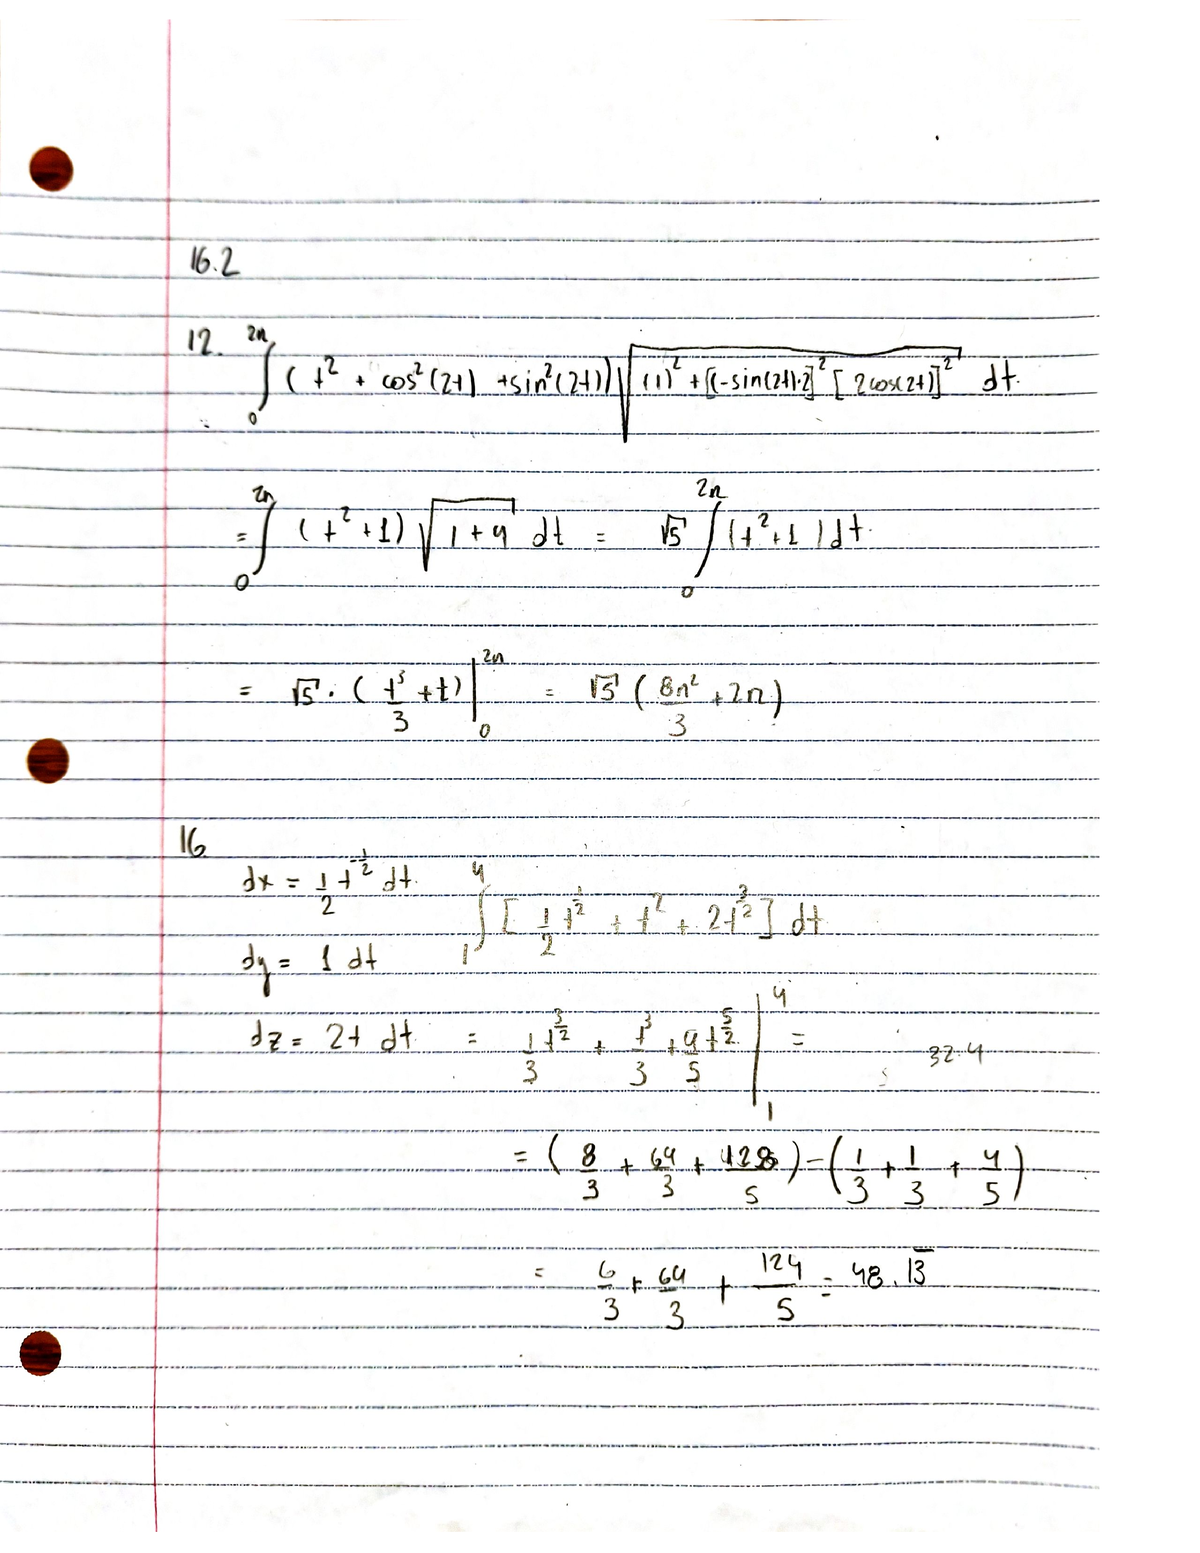 16.2
12. ∫_0^{2π} (t² + cos²(2t) + sin²(2t)) √((1)² + [(-sin(2t)·2]² [2cos(2t)]²) dt.
= ∫_0^{2π} (t² + 1) √(1 + 4) dt = √5 ∫_0^{2π} (t² + 1) dt.
= √5 · (t³/3 + t) |_0^{2π} = √5 (8π²/3 + 2π)
16
dx = 1/2 t^{-1/2} dt. ∫_1^4 [1/2 t^{1/2} + t² + 2t^{3/2}] dt
dy = 1 dt
dz = 2t dt. = 1/3 t^{3/2} + t³/3 + 4/5 t^{5/2} |_1^4 = 32.4
= (8/3 + 64/3 + 128/5) - (1/3 + 1/3 + 4/5)
= 6/3 + 64/3 + 124/5 = 48.13̅